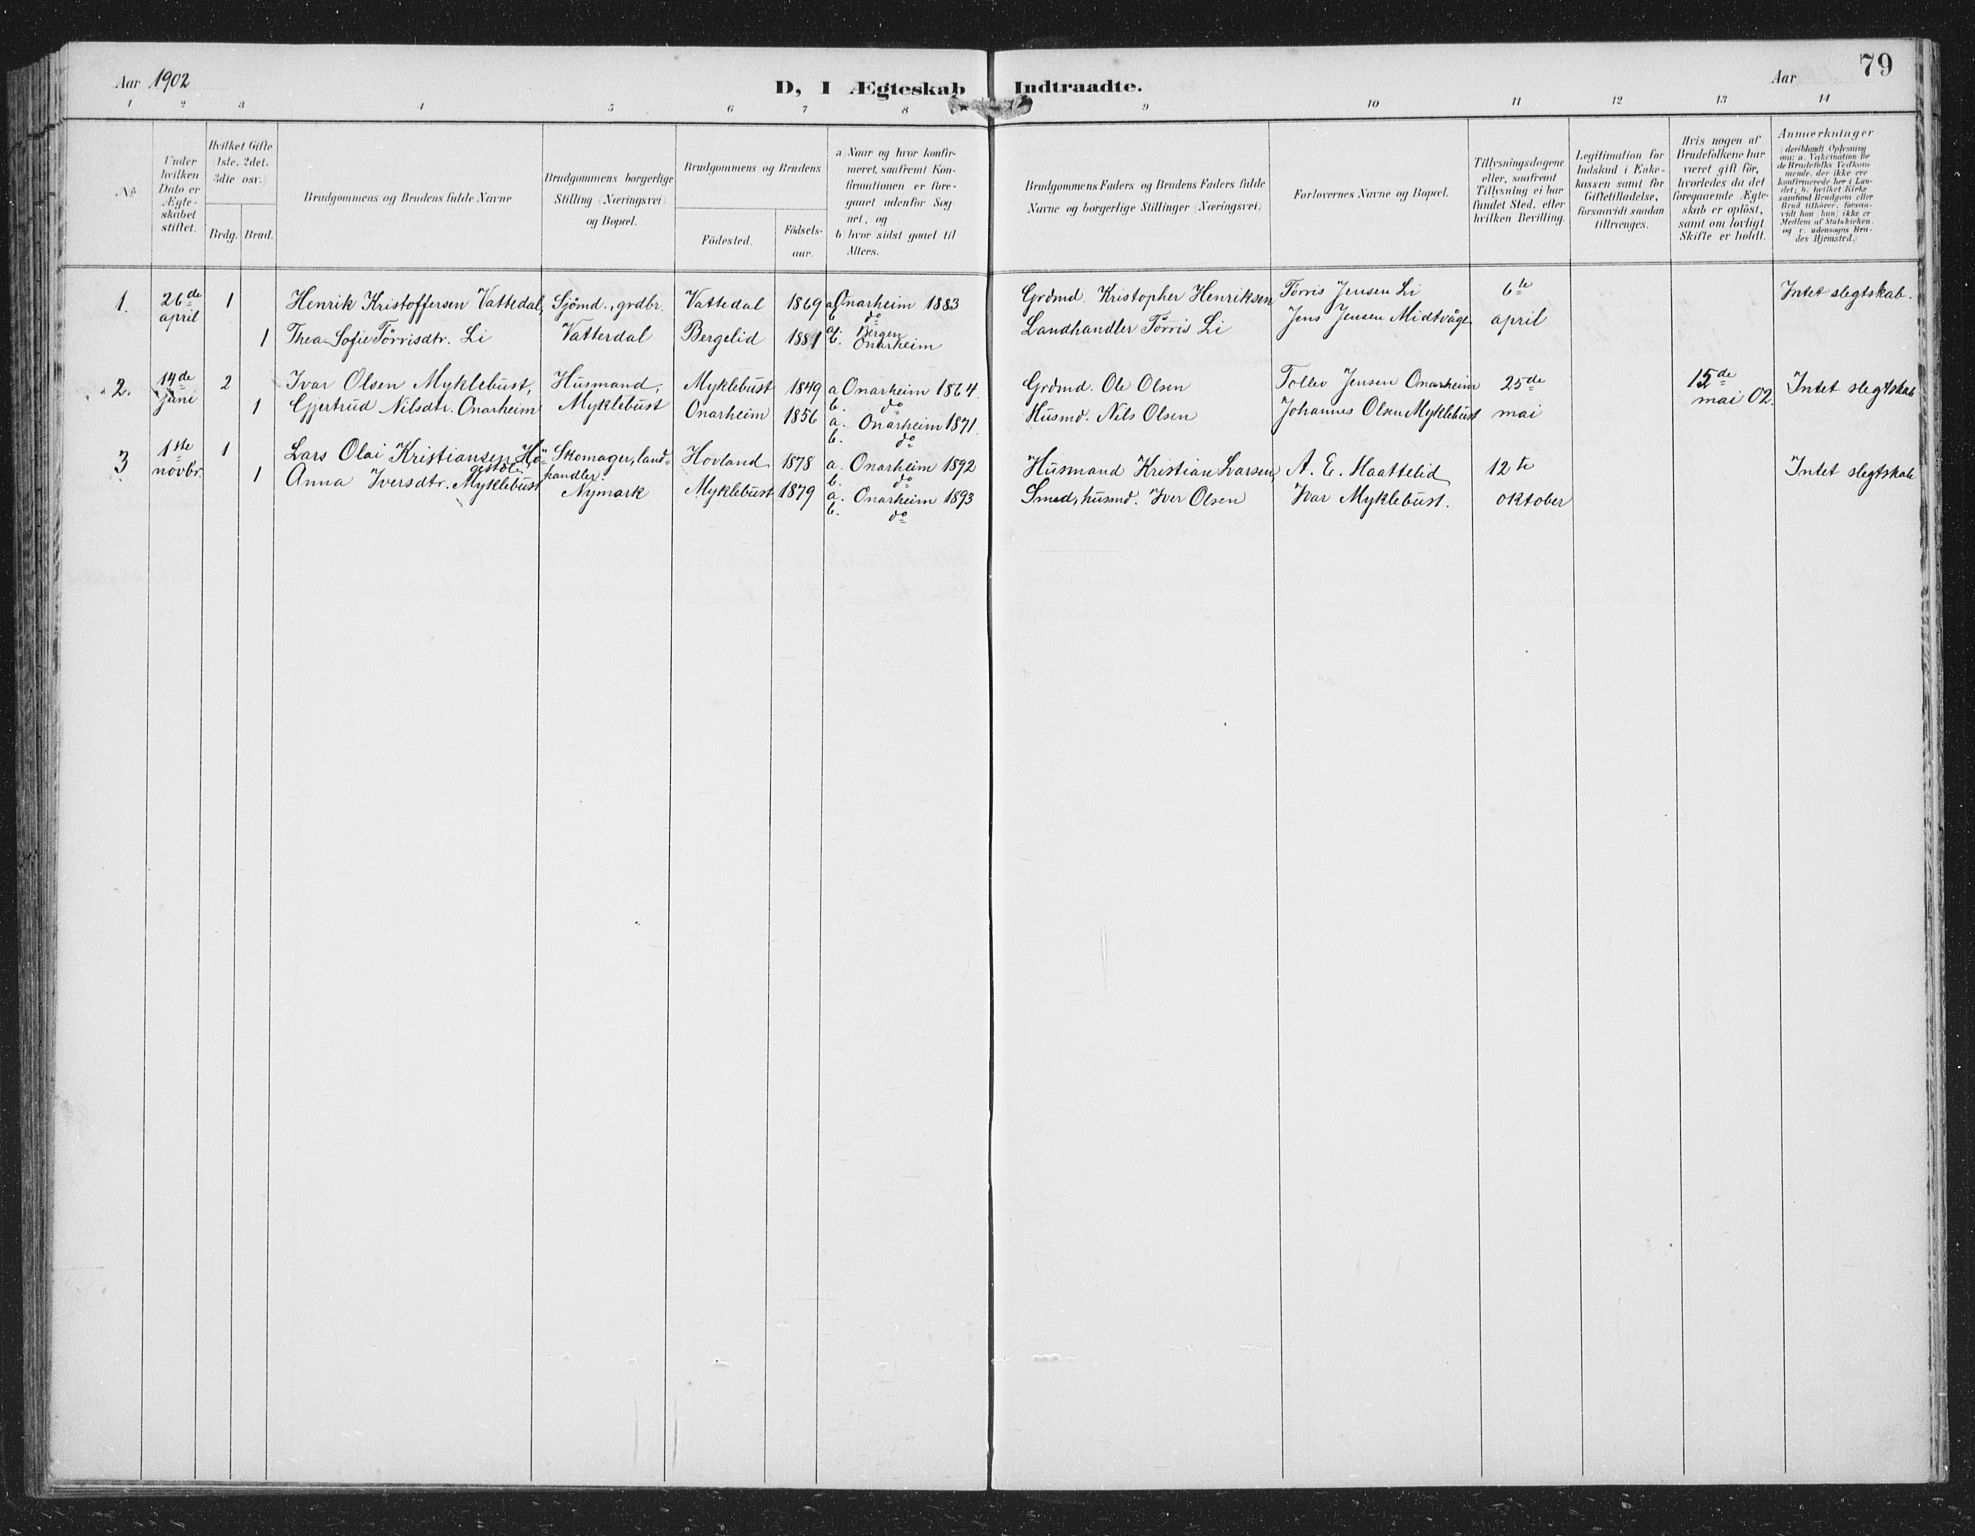 Aar 1902
D, I Ægteskab Indtraadte.
Aar
79
1 2 3 4 5 6 7 8 9 10 11 12 13 14
No
Under hvilken Dato er Ægteskabet stiftet.
Hvilket Gifte (1ste, 2det, 3die osv.)
Brdg. Brud.
Brudgommens og Brudens fulde Navne
Brudgommens borgerlige Stilling (Næringsvei) og Bopæl.
Brudgommens og Brudens
Födested.
Födselsaar.
a Naar og hvor konfirmeret, saafremt Konfirmationen er foregaaet udenfor Sognet, og
b hvor sidst gaaet til Alters.
Brudgommens Faders og Brudens Faders fulde Navne og borgerlige Stillinger (Næringsvei)
Forlovernes Navne og Bopæl.
Tillysningsdagene eller, saafremt Tillysning ei har fundet Sted, efter hvilken Bevilling.
Legitimation for Indskud i Enkekassen samt for Giftetilladelse, forsaavidt saadan tiltrænges.
Hvis nogen af Brudefolkene har været gift för, hvorledes da det foregaaende Ægteskab er oplöst, samt om lovligt Skifte er holdt.
Anmærkninger
(deriblandt Oplysning om: a. Vakcination for de Brudefolks Vedkommende, der ikke ere konfirmerede her i Landet; b. hvilket Kirkesamfund Brudgom eller Brud tilhörer, forsaavidt han (hun) ikke er Medlem af Statskirken, og c. udensogns Brudes Hjemsted.)
1. 26de 1 Henrik Kristoffersen Vattedal, Sjömd., grdbr. Vattedal 1869 a Onarheim 1883 Grdmd. Kristopher Henriksen Törris Jensen Li 6te Intet slegtskab.
april b. do
1 Thea Sofie Törrisdtr. Li Vatterdal Bergelid 1881 a. Bergen Landhandler Törris Li Jens Jensen Midtvåge april
b. Onarheim
2. 14de 2 Ivar Olsen Myklebust, Husmand, Myklebust 1849 a Onarheim 1864. Grdmd. Ole Olsen Tollev Jensen Onarheim 25de 15de Intet slegtskab
juni 1 Gjertrud Nilsdtr. Onarheim Myklebust Onarheim 1856 b. do Husmd. Nils Olsen Johannes Olsen Myklebust mai mai 02.
a. Onarheim 1871.
b. do
3. 1ste 1 Lars Olai Kristiansen Hö- Skomager, land- Hovland 1878 a. Onarheim 1892 Husmand Kristian Larsen A. E. Haattelid 12te Intet slegtskab
novbr. gestöl handler. b. do
1 Anna Iversdtr. Myklebust Nymark Myklebust 1879 a. Onarheim 1893 Smed, husmd. Iver Olsen Ivar Myklebust. oktober
b. do